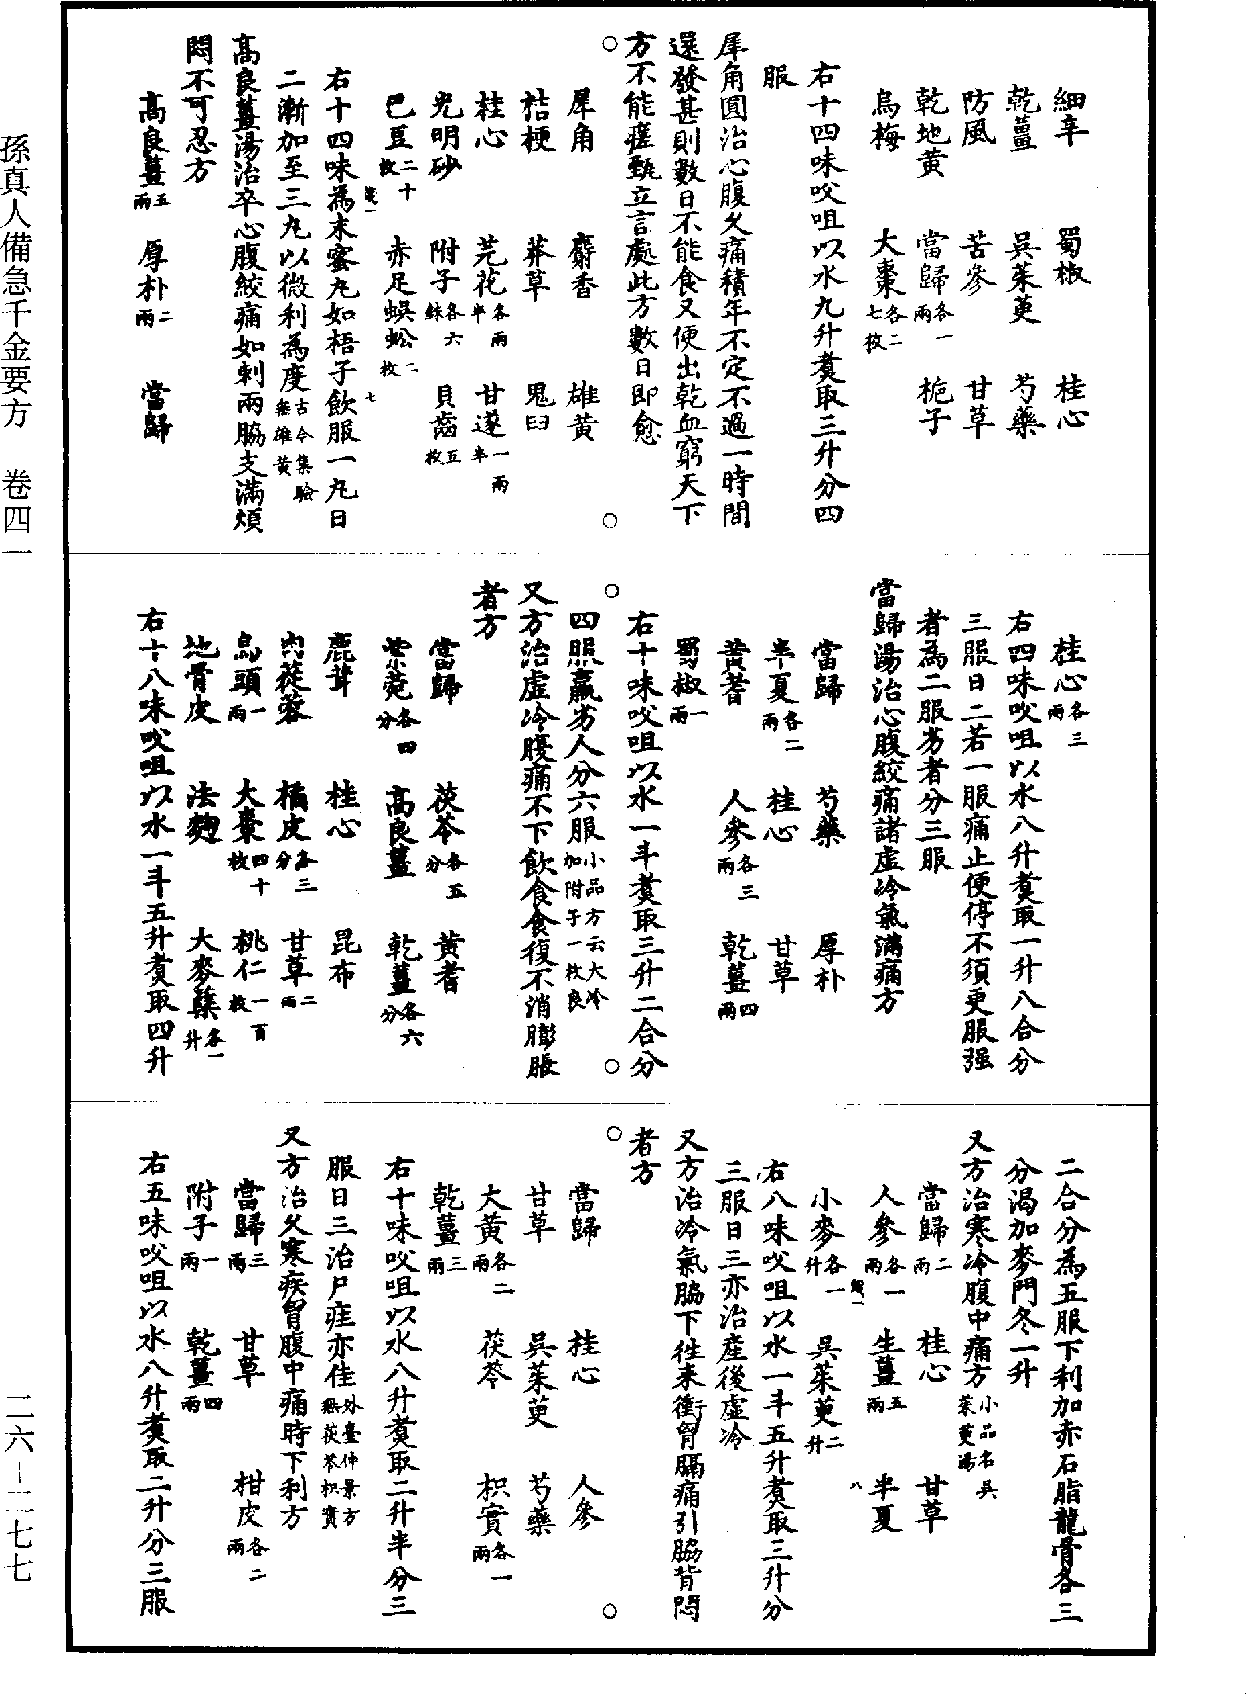 細辛　蜀椒　桂心
乾薑　吳茱萸　芍藥
防風　苦參　甘草
乾地黃　當歸各一兩　梔子
烏梅　大棗各二七枚
右十四味㕮咀以水九升煑取三升分四
服
犀角圓治心腹久痛積年不定不過一時間
還發甚則數日不能食又便出乾血窮天下
方不能瘥甄立言處此方數日即愈
犀角　麝香　雄黃
桔梗　莽草　鬼臼
桂心　芫花各半兩　甘遂一兩半
光明砂　附子各六銖　貝齒五枚
巴豆二十枚　赤足蜈蚣二枚
右十四味為末蜜丸如梧子飲服一丸日
二漸加至三丸以微利為度古今集驗無雄黃
高良薑湯治卒心腹絞痛如刺兩脇支滿煩
悶不可忍方
高良薑五兩　厚朴二兩　當歸
錢一　七
桂心各三兩
右四味㕮咀以水八升煑取一升八合分
三服日二若一服痛止便停不須更服强
者為二服劣者分三服
當歸湯治心腹絞痛諸虛冷氣滿痛方
當歸　芍藥　厚朴
半夏各二兩　桂心　甘草
黃耆　人參各三兩　乾薑四兩
蜀椒一兩
右十味㕮咀以水一斗煑取三升二合分
四服羸劣人分六服小品方云大冷加附子一枚良
又方治虛冷腹痛不下飲食食復不消膨脹
者方
當歸　茯苓各五分　黃耆
紫菀各四分　高良薑　乾薑各六分
鹿茸　桂心　昆布
肉蓯蓉　橘皮各三分　甘草二兩
烏頭一兩　大棗四十枚　桃仁一百枚
地骨皮　法麴　大麥蘖各一升
右十八味㕮咀以水一斗五升煑取四升
二合分為五服下利加赤石脂龍骨各三
分渴加麥門冬一升
又方治寒冷腹中痛方小品名吳茱萸湯
當歸二兩　桂心　甘草
人參各一兩　生薑五兩　半夏
小麥各一升　吳茱萸二升
右八味㕮咀以水一斗五升煑取三升分
三服日三亦治產後虛冷
又方治冷氣脇下往來衝胷膈痛引脇背悶
者方
當歸　桂心　人參
甘草　吳茱萸　芍藥
大黃各二兩　茯苓　枳實各一兩
乾薑三兩
右十味㕮咀以水八升煑取二升半分三
服日三治尸疰亦佳外臺仲景方無茯苓枳實
又方治久寒疾胷腹中痛時下利方
當歸三兩　甘草　柑皮各二兩
附子一兩　乾薑四兩
右五味㕮咀以水八升煑取二升分三服
錢一　八
孫真人備急千金要方　卷四一
二六－二七七